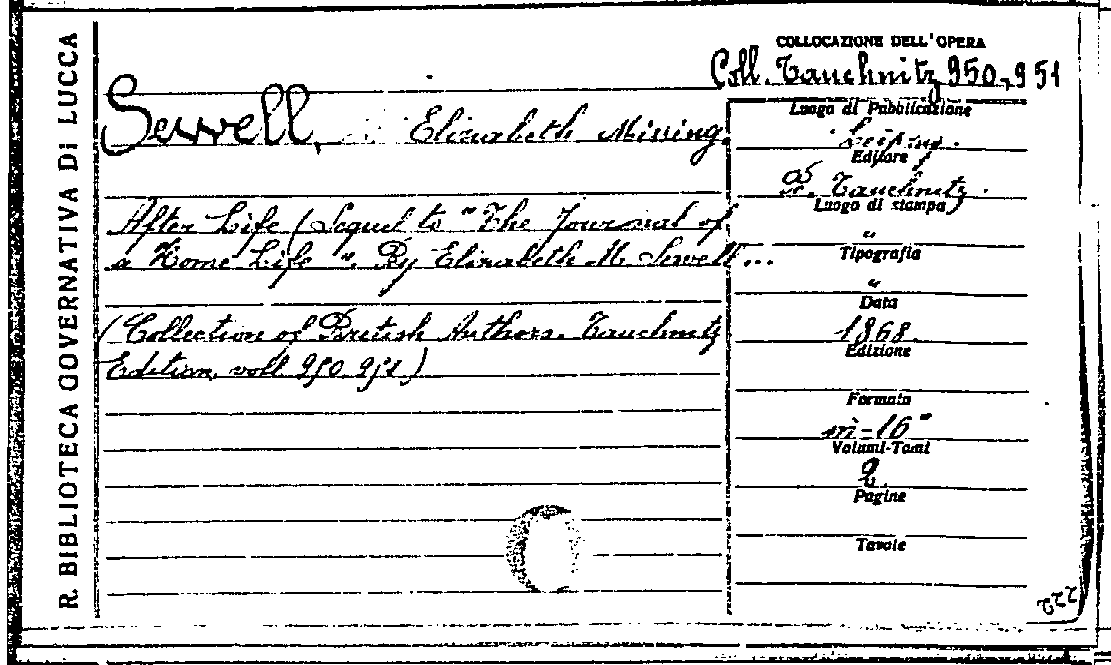 R. BIBLIOTECA GOVERNATIVA DI LUCCA
COLLOCAZIONE DELL'OPERA
Coll. Tauchnitz 950-951
Sewell, Elizabeth Missing.
After Life (Sequel to "The Journal of
a Home Life". By Elizabeth M. Sewell...
(Collection of British Authors. Tauchnitz
Edition, voll 950 951)
Luogo di Pubblicazione
Leipzig.
Editore
B. Tauchnitz.
Luogo di stampa
"
Tipografia
"
Data
1868.
Edizione
Formato
in-16°
Volumi-Tomi
2.
Pagine
Tavole